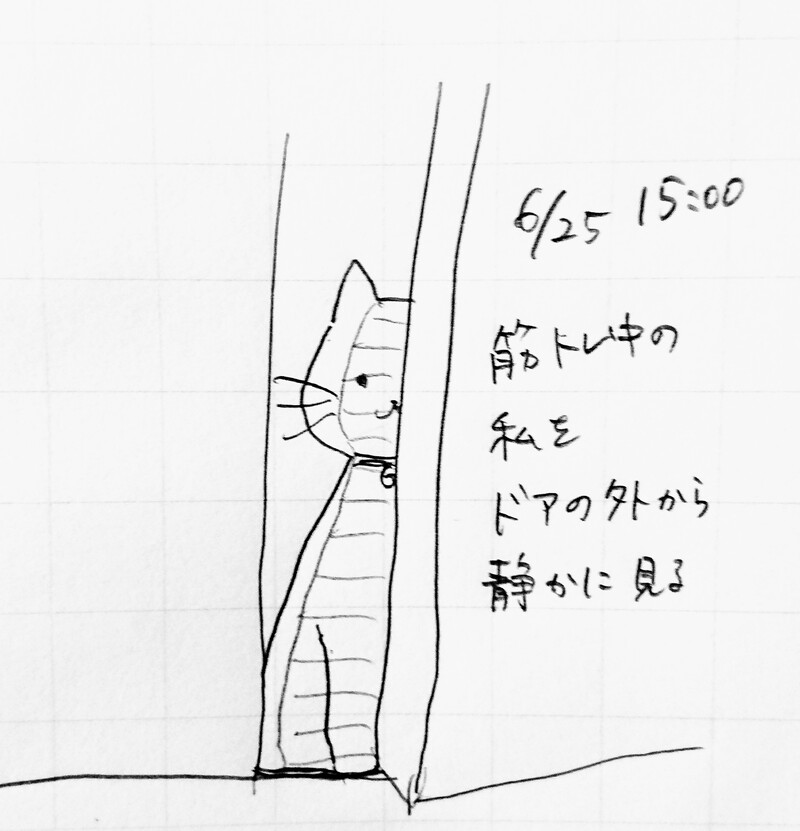 6/25 15:00
筋トレ中の
私を
ドアの外から
静かに見る